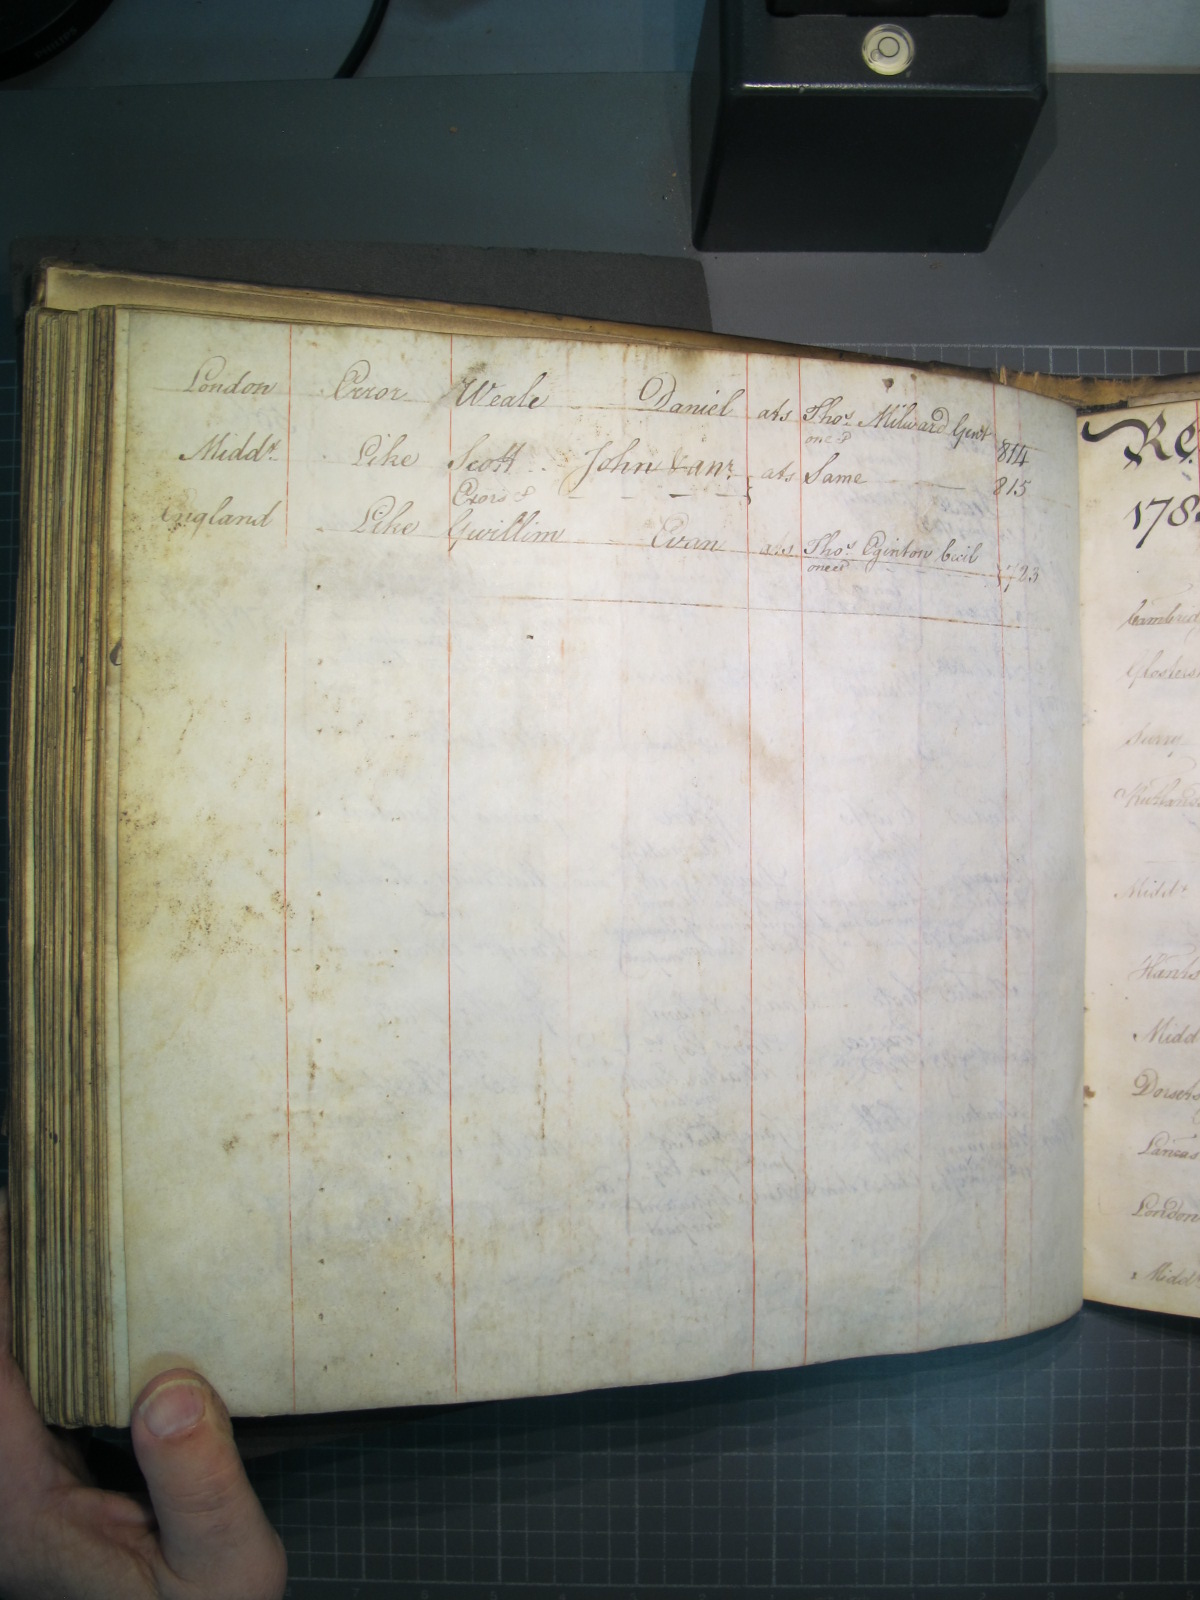 London Error Weale Daniel ats Thos. Milward Gent
one &c 814
Middx. Like Scott John & anr. ats Same 815
Exors &c
England Like Gwillim Evan ats Thos. Eginton Cecil
one &c
Re
178
Cambrid
Glosters
Surry
Rutlands
Middx.
Hants
Midd
Dorsets
Lancas
London
Middx